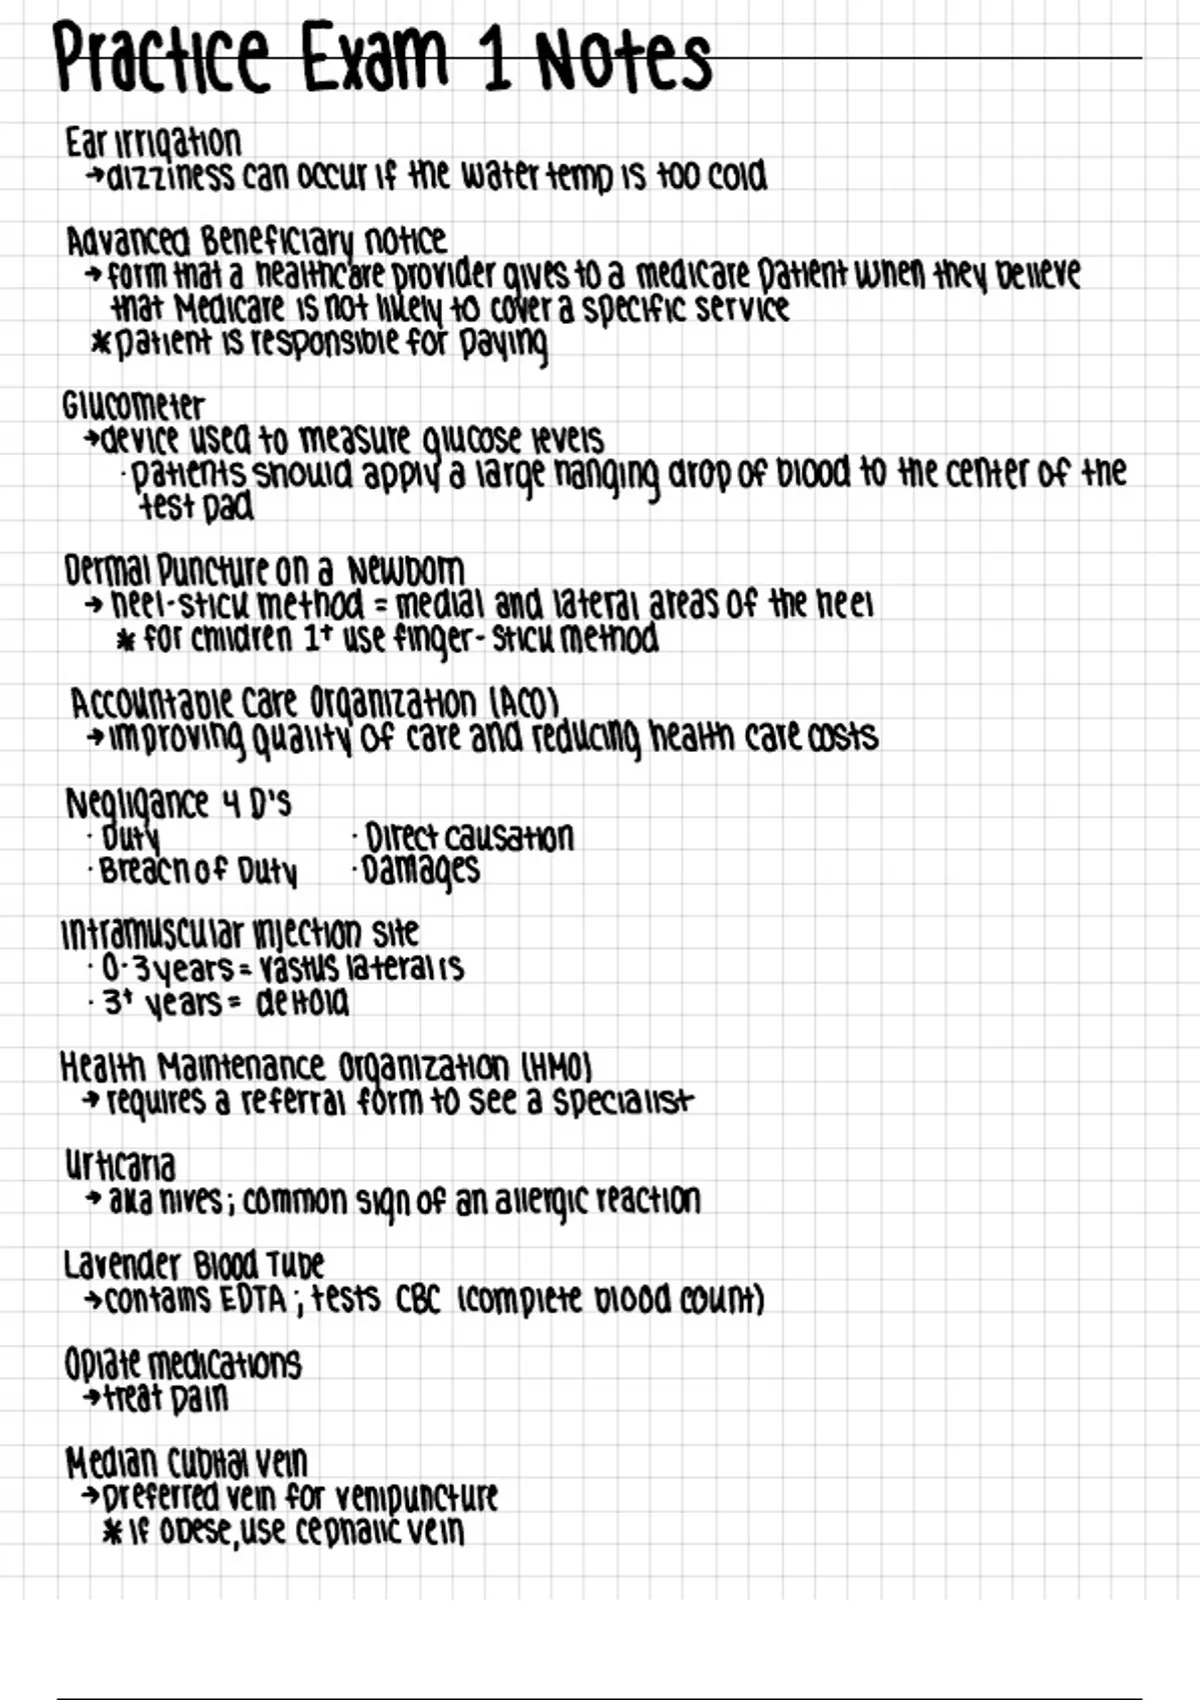 Practice Exam 1 Notes
Ear irrigation
→dizziness can occur if the water temp is too cold
Advanced Beneficiary notice
→form that a healthcare provider gives to a medicare patient when they believe
that Medicare is not likely to cover a specific service
*patient is responsible for paying
Glucometer
→device used to measure glucose levels
·patients should apply a large hanging drop of blood to the center of the
test pad
Dermal Puncture on a Newborn
→ heel-stick method = medial and lateral areas of the heel
* for children 1+ use finger-stick method
Accountable Care Organization (ACO)
→improving quality of care and reducing health care costs
Negligance 4 D's
· Duty · Direct causation
· Breach of Duty ·Damages
Intramuscular injection site
· 0-3 years = vastus lateralis
· 3+ years = deltoid
Health Maintenance Organization (HMO)
→requires a referral form to see a specialist
Urticaria
→ aka hives; common sign of an allergic reaction
Lavender Blood Tube
→contains EDTA; tests CBC (complete blood count)
Opiate medications
→treat pain
Median Cubital vein
→preferred vein for venipuncture
* if obese, use cephalic vein